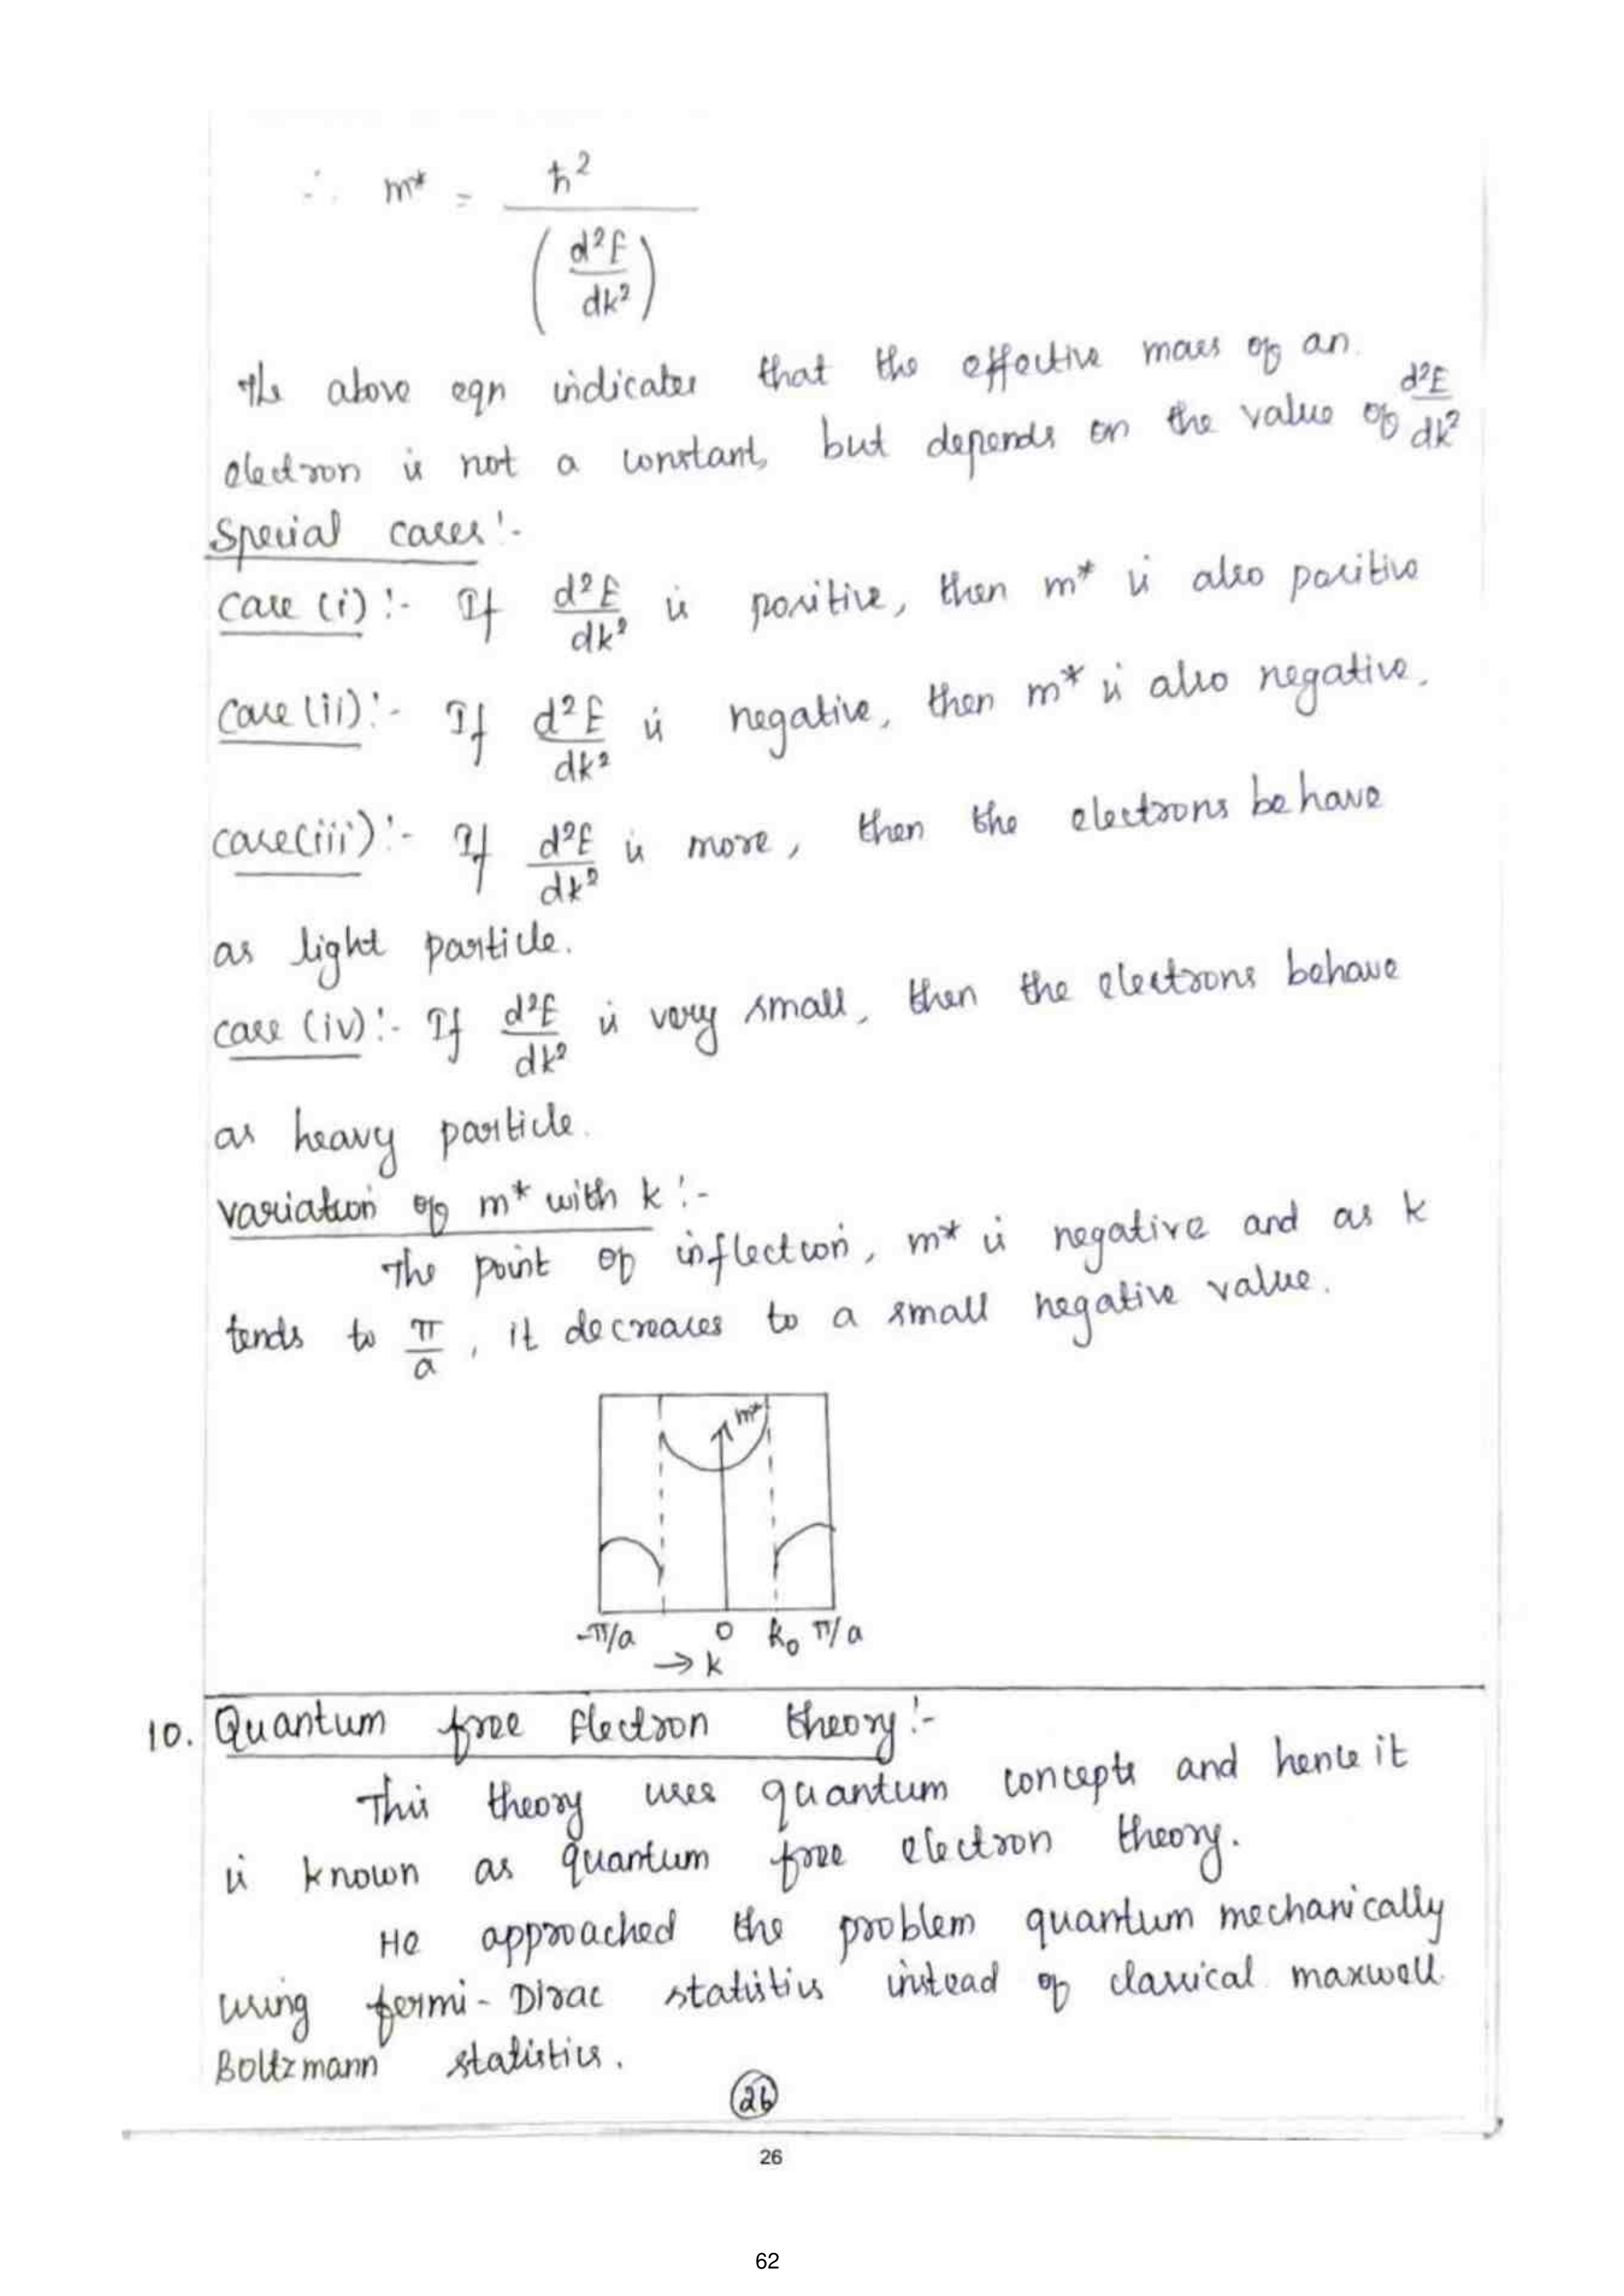 ∴ m* = ħ²
(d²E
dk²)
The above eqn indicates that the effective mass of an
electron is not a constant, but depends on the value of d²E/dk²
Special cases:-
Case (i):- If d²E/dk² is positive, then m* is also positive
Case (ii):- If d²E/dk² is negative, then m* is also negative.
case(iii):- If d²E/dk² is more, then the electrons behave
as light particle.
case (iv):- If d²E/dk² is very small, then the electrons behave
as heavy particle.
variation of m* with k:-
The point of inflection, m* is negative and as k
tends to π/a, it decreases to a small negative value.
m*
-π/a 0 k₀ π/a
→ k
10. Quantum free Electron theory:-
This theory uses quantum concepts and hence it
is known as quantum free electron theory.
He approached the problem quantum mechanically
using fermi-Dirac statistics instead of classical maxwell
Boltzmann statistics.
26
26
62